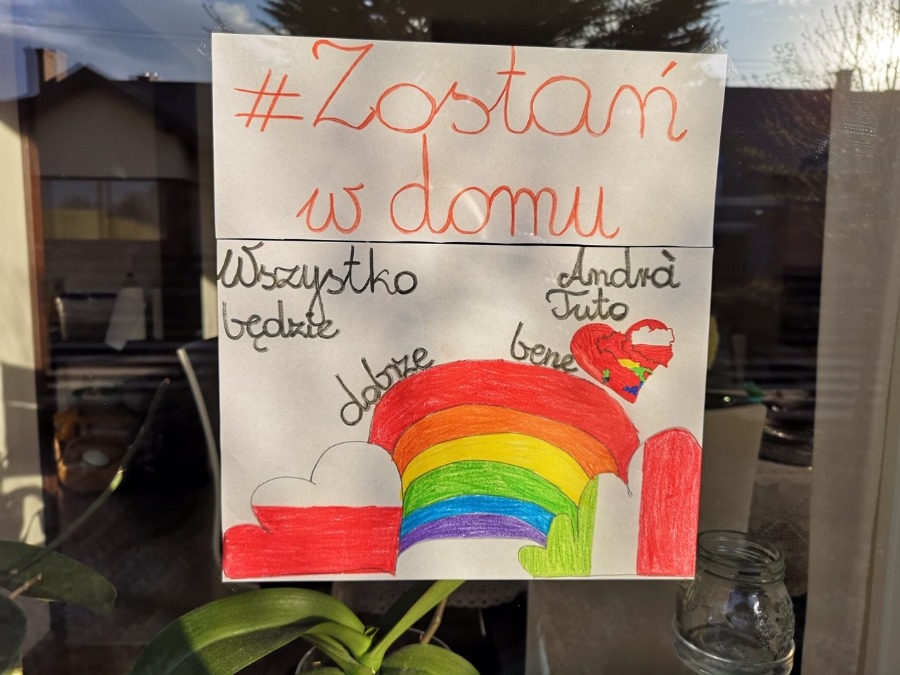 #Zostań
w domu
Wszystko
będzie
dobrze
Andrà
Tuto
bene